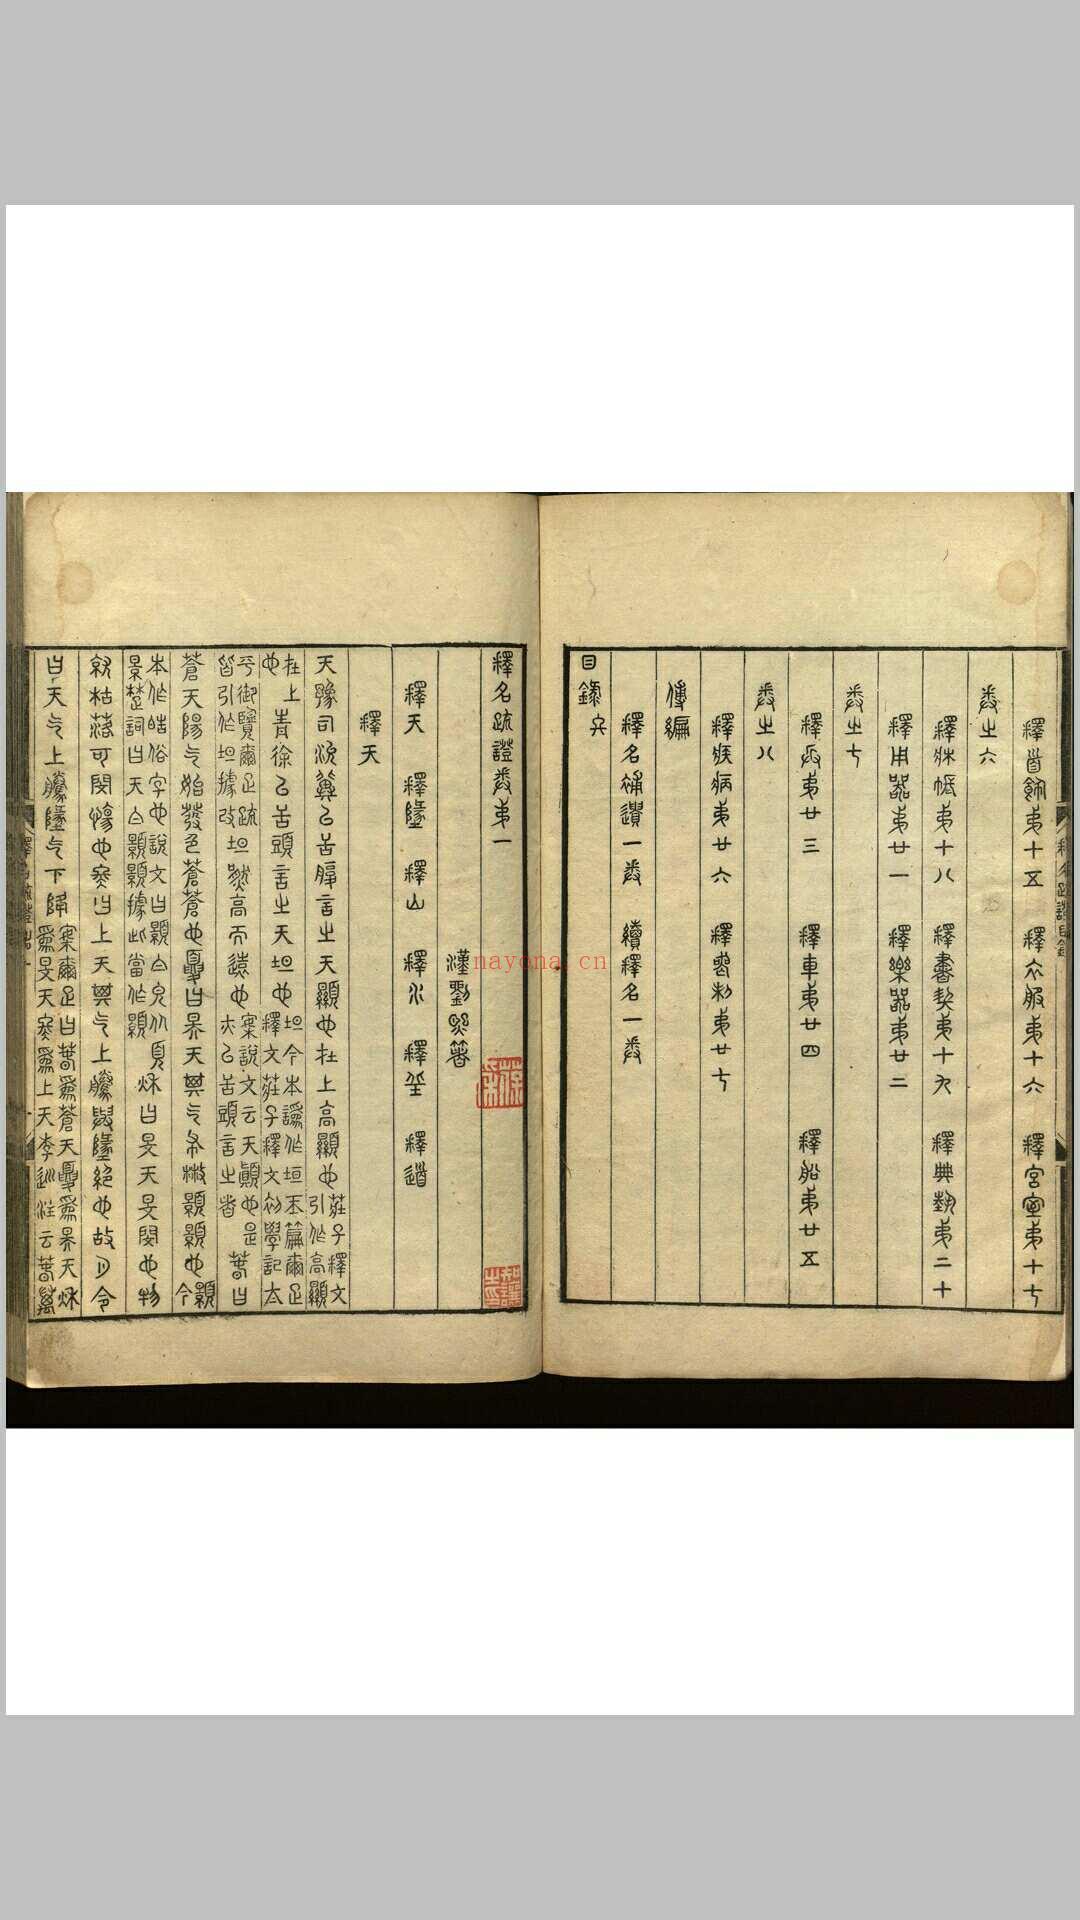 釋首飾弟十五　釋衣服弟十六　釋宮室弟十七
卷之六
釋牀帳弟十八　釋書契弟十九　釋典藝弟二十
釋用器弟廿一　釋樂器弟廿二
卷之七
釋兵弟廿三　釋車弟廿四　釋船弟廿五
卷之八
釋疾病弟廿六　釋喪制弟廿七
傅編
釋名補遺一卷　續釋名一卷
目錄終
釋名疏證卷弟一
漢劉熙箸
釋天　釋墬　釋山　釋水　釋丘　釋道
釋天
天豫司沇冀㠯舌腹言之天顯也在上高顯也莊子釋文引作高顯
在上也青徐㠯舌頭言之天坦也坦今本譌作垣玉篇爾疋釋文莊子釋文初學記太
平御覽爾疋疏皆引作坦據改坦然高而遠也案說文云天顚也是亦㠯舌頭言之者春曰
蒼天陽气始發色蒼蒼也夏曰昊天其气布散顥顥也顥今
本作皓俗字也說文曰顥白皃从頁景楚詞曰天白顥顥據此當作顥秌曰旻天旻閔也物
就枯落可閔傷也冬曰上天其气上騰與墬絕也故月令
曰天气上騰墬气下降案爾疋曰春爲蒼天夏爲昊天秌爲旻天冬爲上天李巡注云春萬
nayona.cn